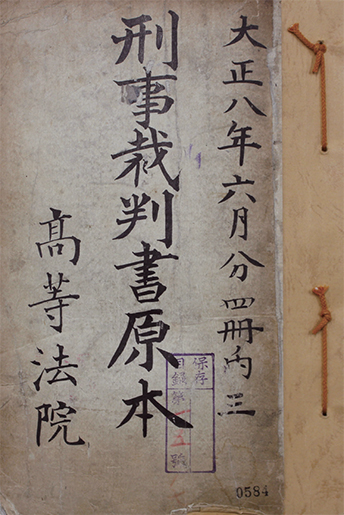 大正八年六月分四冊內三
刑事裁判書原本
高等法院
保存
目錄第一五號
0584